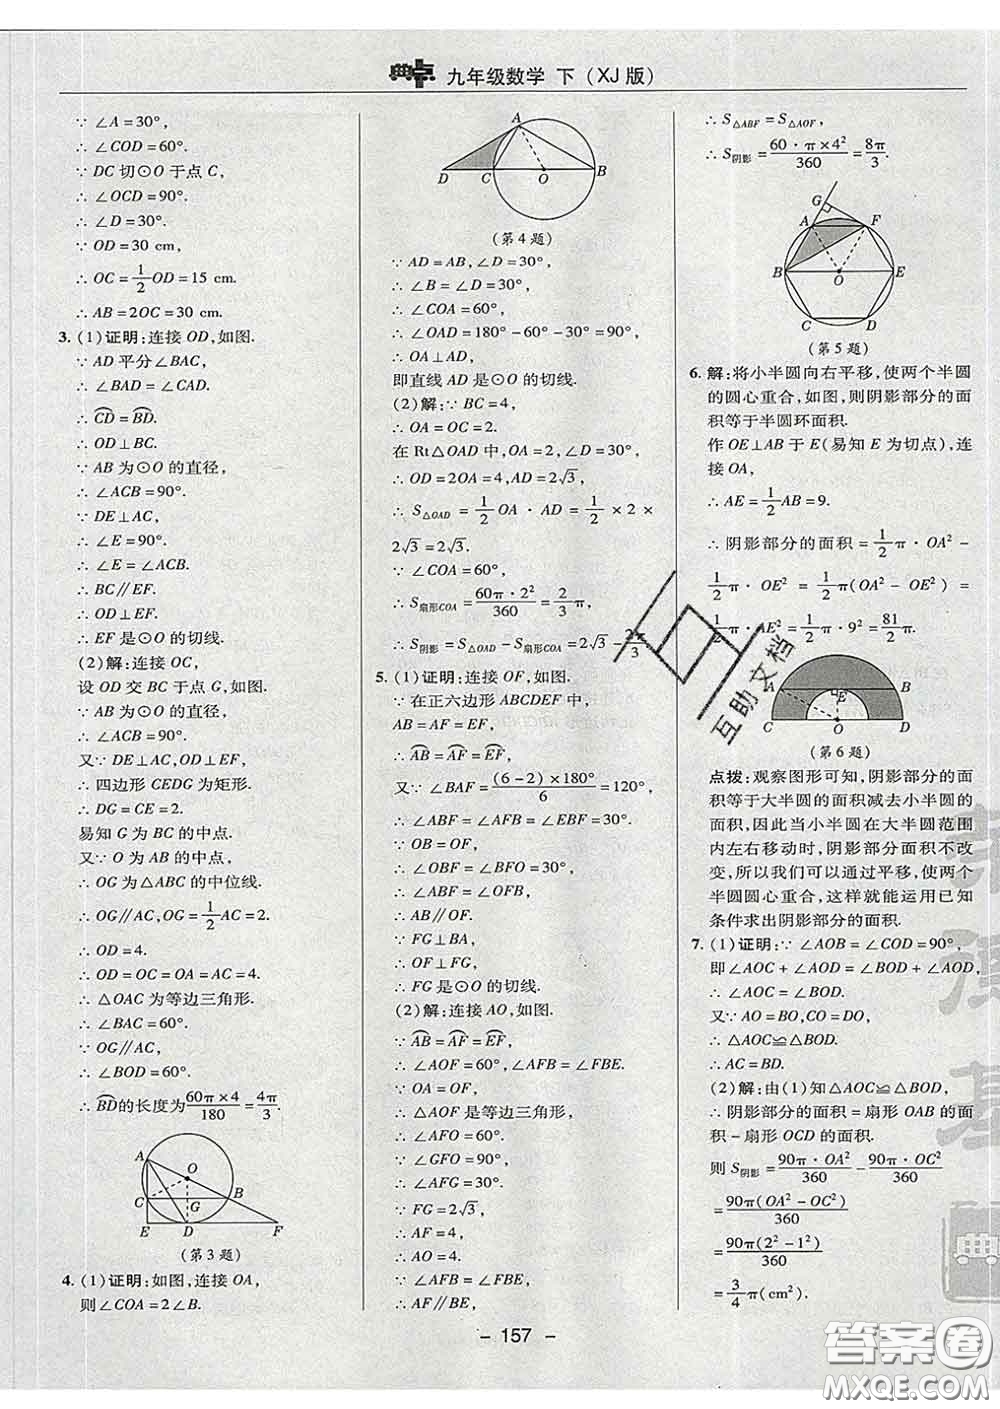 典中点 九年级数学 下(XJ版)
∵ ∠A=30°,
∴ ∠COD=60°.
∵ DC切⊙O于点C,
∴ ∠OCD=90°.
∴ ∠D=30°.
∵ OD=30 cm,
∴ OC=1/2OD=15 cm.
∴ AB=2OC=30 cm.
3. (1)证明:连接OD,如图.
∵ AD平分∠BAC,
∴ ∠BAD=∠CAD.
∴ ⌒CD=⌒BD.
∴ OD⊥BC.
∵ AB为⊙O的直径,
∴ ∠ACB=90°.
∵ DE⊥AC,
∴ ∠E=90°.
∴ ∠E=∠ACB.
∴ BC∥EF.
∴ OD⊥EF.
∴ EF是⊙O的切线.
(2)解:连接OC,
设OD交BC于点G,如图.
∵ AB为⊙O的直径,
∴ ∠ACB=90°.
又∵ DE⊥AC,OD⊥EF,
∴ 四边形CEDG为矩形.
∴ DG=CE=2.
易知G为BC的中点.
又∵ O为AB的中点,
∴ OG为△ABC的中位线.
∴ OG∥AC,OG=1/2AC=2.
∴ OD=4.
∴ OD=OC=OA=AC=4.
∴ △OAC为等边三角形.
∴ ∠BAC=60°.
∵ OG∥AC,
∴ ∠BOD=60°.
∴ ⌒BD的长度为60π×4/180=4π/3.
A
O
C
G
B
E
D
F
(第3题)
4. (1)证明:如图,连接OA,
则∠COA=2∠B.
A
D
C
O
B
(第4题)
∵ AD=AB,∠D=30°,
∴ ∠B=∠D=30°.
∴ ∠COA=60°.
∴ ∠OAD=180°-60°-30°=90°.
∴ OA⊥AD,
即直线AD是⊙O的切线.
(2)解:∵ BC=4,
∴ OA=OC=2.
在Rt△OAD中,OA=2,∠D=30°,
∴ OD=2OA=4,AD=2√3.
∴ S△OAD=1/2OA·AD=1/2×2×
2√3=2√3.
∵ ∠COA=60°,
∴ S扇形COA=60π·2²/360=2/3π,
∴ S阴影=S△OAD-S扇形COA=2√3-2π/3.
5. (1)证明:连接OF,如图.
∵ 在正六边形ABCDEF中,
AB=AF=EF,
∴ ⌒AB=⌒AF=⌒EF.
又∵ ∠BAF=(6-2)×180°/6=120°,
∴ ∠ABF=∠AFB=∠EBF=30°.
∵ OB=OF,
∴ ∠OBF=∠BFO=30°.
∴ ∠ABF=∠OFB,
∴ AB∥OF.
∵ FG⊥BA,
∴ OF⊥FG.
∴ FG是⊙O的切线.
(2)解:连接AO,如图.
∵ ⌒AB=⌒AF=⌒EF,
∴ ∠AOF=60°,∠AFB=∠FBE.
∵ OA=OF,
∴ △AOF是等边三角形.
∴ ∠AFO=60°.
∵ ∠GFO=90°,
∴ ∠AFG=30°.
∵ FG=2√3,
∴ AF=4.
∴ AO=4.
∵ ∠AFB=∠FBE,
∴ AF∥BE,
∴ S△ABF=S△AOF,
∴ S阴影=60·π×4²/360=8π/3.
G
A
F
B
E
O
C
D
(第5题)
6. 解:将小半圆向右平移,使两个半圆
的圆心重合,如图,则阴影部分的面
积等于半圆环面积.
作OE⊥AB于E(易知E为切点),连
接OA,
∴ AE=1/2AB=9.
∴ 阴影部分的面积=1/2π·OA²-
1/2π·OE²=1/2π(OA²-OE²)=
1/2π·AE²=1/2π·9²=81/2π.
A
E
B
C
O
D
(第6题)
点拨:观察图形可知,阴影部分的面
积等于大半圆的面积减去小半圆的
面积,因此当小半圆在大半圆范围
内左右移动时,阴影部分面积不改
变,所以我们可以通过平移,使两个
半圆圆心重合,这样就能运用已知
条件求出阴影部分的面积.
7. (1)证明:∵ ∠AOB=∠COD=90°,
即∠AOC+∠AOD=∠BOD+∠AOD,
∴ ∠AOC=∠BOD.
又∵ AO=BO,CO=DO,
∴ △AOC≌△BOD.
∴ AC=BD.
(2)解:由(1)知△AOC≌△BOD,
∴ 阴影部分的面积=扇形OAB的面
积-扇形OCD的面积.
则S阴影=90π·OA²/360-90π·OC²/360
=90π(OA²-OC²)/360
=90π(2²-1²)/360
=3/4π(cm²).
- 157 -
互助文档
答案圈
MXQE.COM